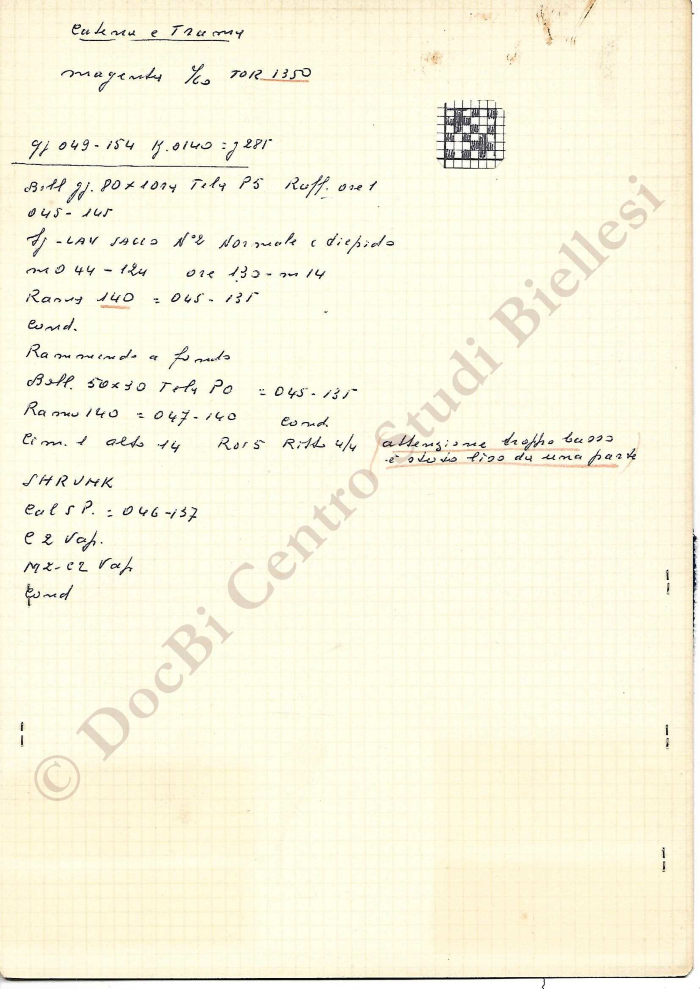 Catena e Trama
Magenta 1/60 TOR 1350
gj 049-154 K.0140 = g 285
Boll gj. 80x10ra Tela P5 Raff. ore 1
045-145
LAV SACCO N°2 Normale e diepido
m 044-124 ore 130-m 14
Ramo 140 = 045-135
Cond.
Rammendo a fondo
Boll. 50x30 Tela PO = 045-135
Ramo 140 = 047-140 Cond
Cim. 1 alto 14 Rot 5 Ritto 4/4 attenzione troppo basso
è stato liso da una parte
SHRUNK
Cal S P. = 046-137
C 2 Vap.
MZ-C2 Vap
Cond
© DocBi Centro Studi Biellesi